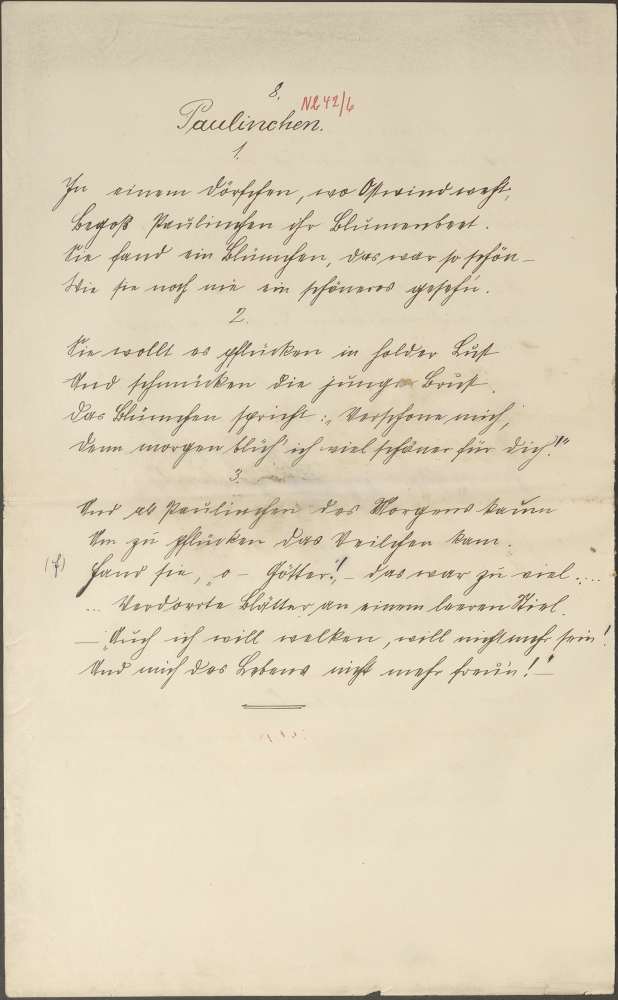 8.
N2 42/6
Paulinchen.
1.
In einem Dörfchen, wo Ostwind weht,
Begoß Paulinchen ihr Blumenbeet.
Sie fand ein Blümchen, das war so schön –
Wie sie noch nie ein schöneres gesehn.
2.
Sie wollt es pflücken in holder Lust
Und schmücken die junge Brust.
Das Blümchen spricht: „Verschone mich,
Denn morgen blüh' ich viel schöner für dich!"
3.
Und als Paulinchen des Morgens kaum
Um zu pflücken das Veilchen kam.
(f) Fand sie, „o – Götter!" – das war zu viel ....
... Verdorrte Blätter an einem leeren Stiel.
– „Auch ich will welken, will nicht mehr sein!
Und mich des Lebens nicht mehr freu'n!" –